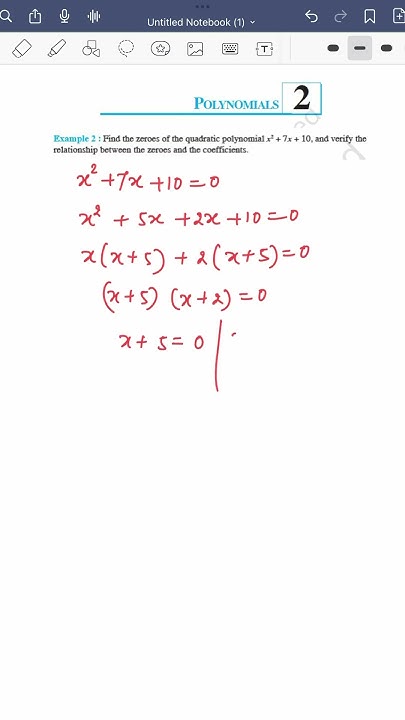 Untitled Notebook (1)
POLYNOMIALS 2
Example 2 : Find the zeroes of the quadratic polynomial x² + 7x + 10, and verify the
relationship between the zeroes and the coefficients.
x² + 7x + 10 = 0
x² + 5x + 2x + 10 = 0
x(x + 5) + 2(x + 5) = 0
(x + 5) (x + 2) = 0
x + 5 = 0